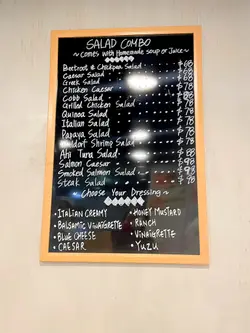 SALAD COMBO
~ comes with Homemade soup or Juice ~
Beetroot & Chickpea Salad $68
Caesar Salad $68
Greek Salad $68
Chicken Caesar $78
Cobb Salad
Grilled Chicken Salad $78
Quinoa Salad $78
Italian Salad $78
Papaya Salad
Waldorf Shrimp Salad $78
Ahi Tuna Salad
Salmon Caesar
Smoked Salmon Salad
Steak Salad
~ Choose Your Dressing ~
• ITALIAN CREAMY • HONEY MUSTARD
• BALSAMIC VINAIGRETTE • RANCH
• BLUE CHEESE • VINAIGRETTE
• CAESAR • YUZU